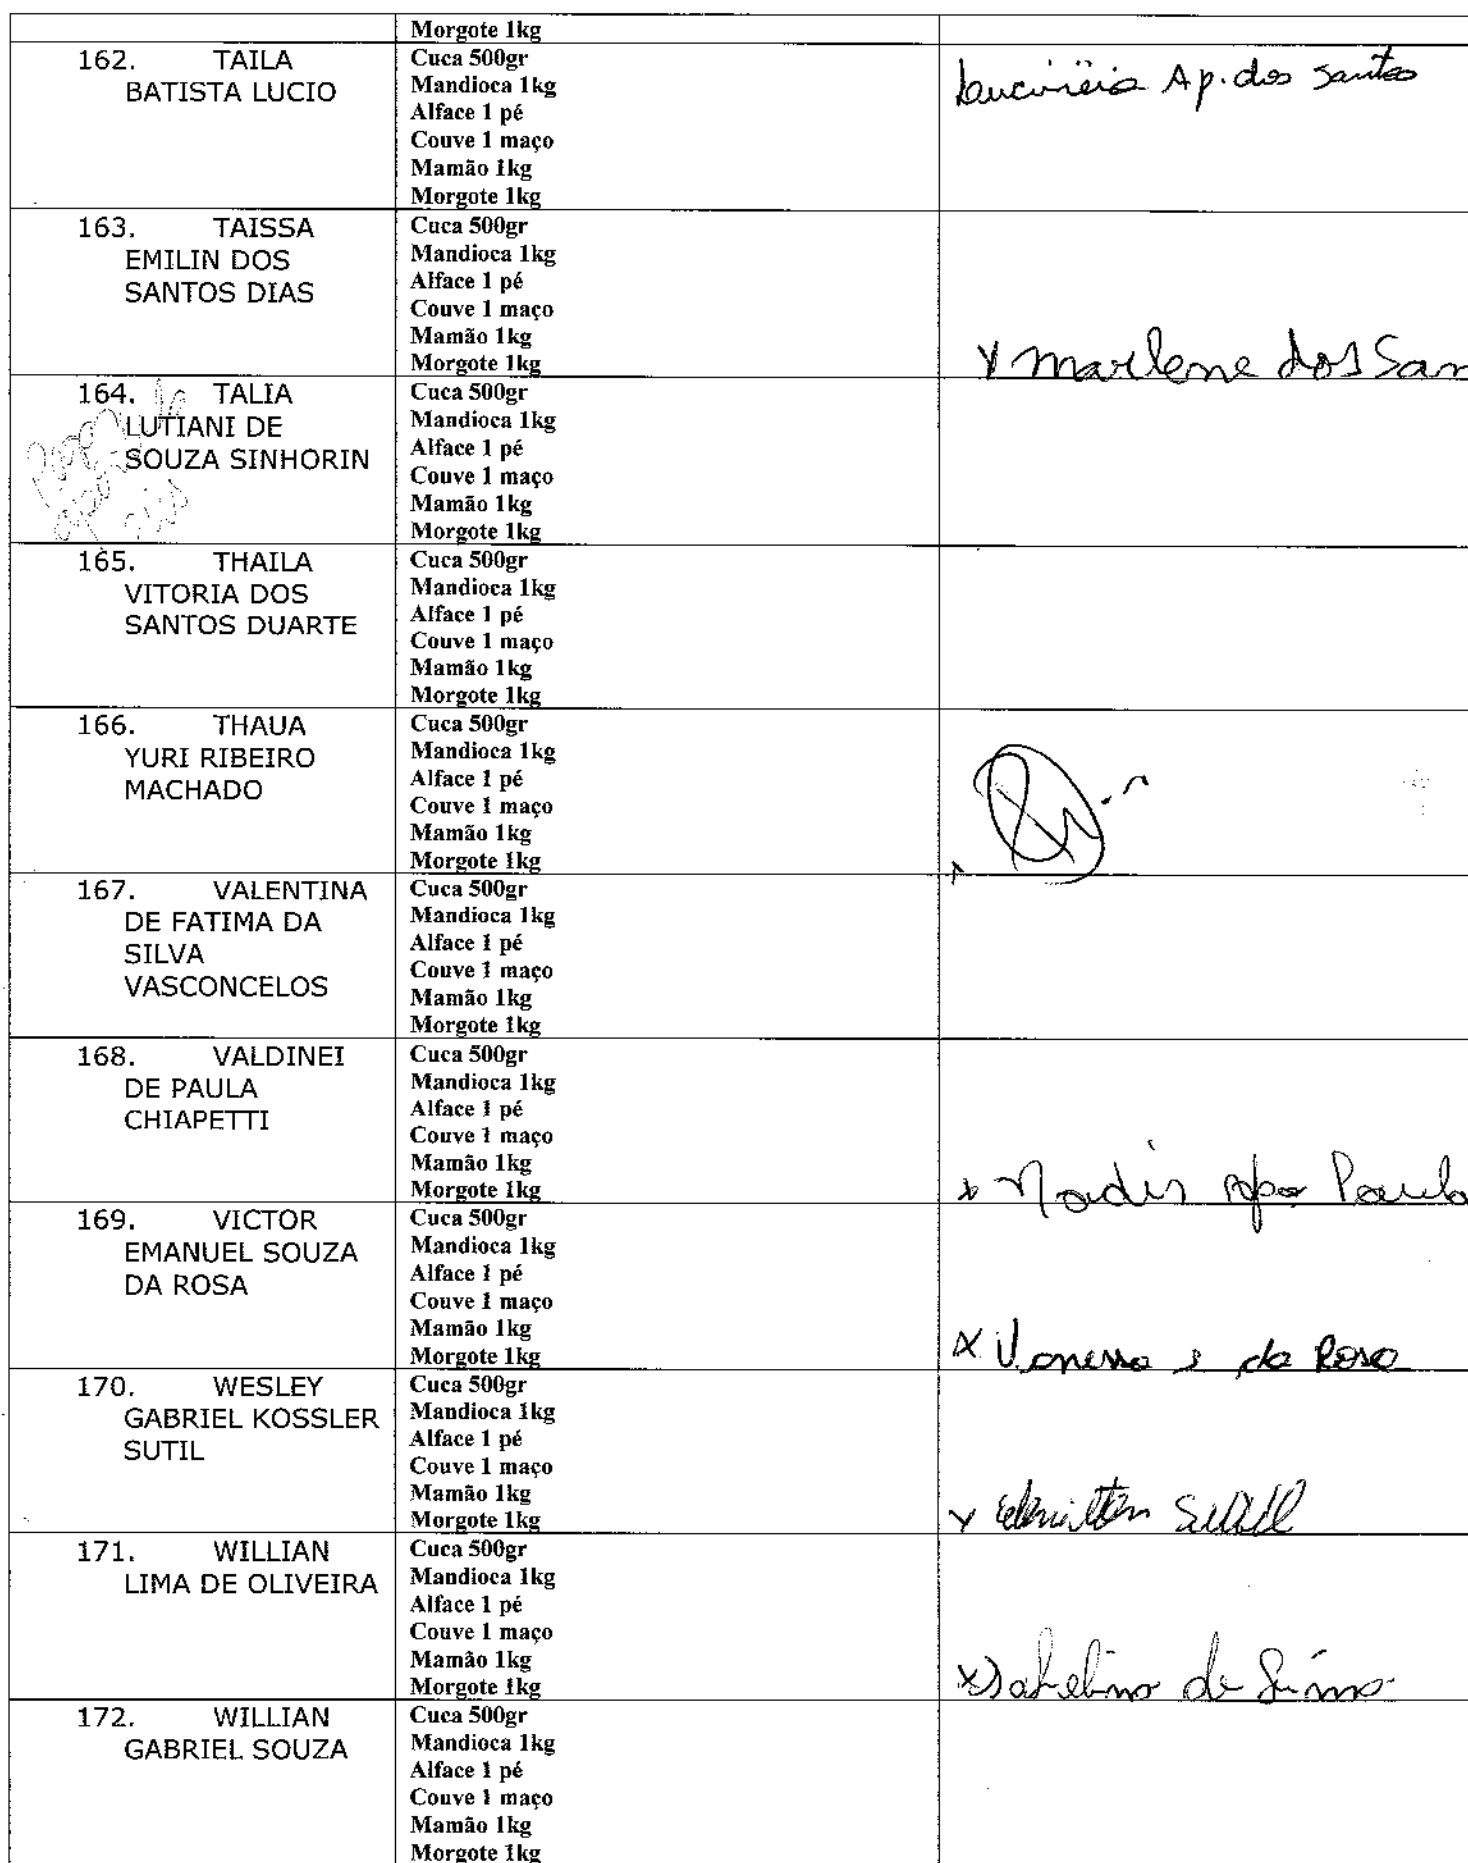 Morgote 1kg
162. TAILA
BATISTA LUCIO
Cuca 500gr
Mandioca 1kg
Alface 1 pé
Couve 1 maço
Mamão 1kg
Morgote 1kg
Lucinéia Ap. dos Santos
163. TAISSA
EMILIN DOS
SANTOS DIAS
Cuca 500gr
Mandioca 1kg
Alface 1 pé
Couve 1 maço
Mamão 1kg
Morgote 1kg
x Marlene dos San
164. TALIA
LUTIANI DE
SOUZA SINHORIN
Cuca 500gr
Mandioca 1kg
Alface 1 pé
Couve 1 maço
Mamão 1kg
Morgote 1kg
165. THAILA
VITORIA DOS
SANTOS DUARTE
Cuca 500gr
Mandioca 1kg
Alface 1 pé
Couve 1 maço
Mamão 1kg
Morgote 1kg
166. THAUA
YURI RIBEIRO
MACHADO
Cuca 500gr
Mandioca 1kg
Alface 1 pé
Couve 1 maço
Mamão 1kg
Morgote 1kg
167. VALENTINA
DE FATIMA DA
SILVA
VASCONCELOS
Cuca 500gr
Mandioca 1kg
Alface 1 pé
Couve 1 maço
Mamão 1kg
Morgote 1kg
168. VALDINEI
DE PAULA
CHIAPETTI
Cuca 500gr
Mandioca 1kg
Alface 1 pé
Couve 1 maço
Mamão 1kg
Morgote 1kg
x Nadir Paula
169. VICTOR
EMANUEL SOUZA
DA ROSA
Cuca 500gr
Mandioca 1kg
Alface 1 pé
Couve 1 maço
Mamão 1kg
Morgote 1kg
x Vanessa s da Rosa
170. WESLEY
GABRIEL KOSSLER
SUTIL
Cuca 500gr
Mandioca 1kg
Alface 1 pé
Couve 1 maço
Mamão 1kg
Morgote 1kg
x Sutil
171. WILLIAN
LIMA DE OLIVEIRA
Cuca 500gr
Mandioca 1kg
Alface 1 pé
Couve 1 maço
Mamão 1kg
Morgote 1kg
x de
172. WILLIAN
GABRIEL SOUZA
Cuca 500gr
Mandioca 1kg
Alface 1 pé
Couve 1 maço
Mamão 1kg
Morgote 1kg